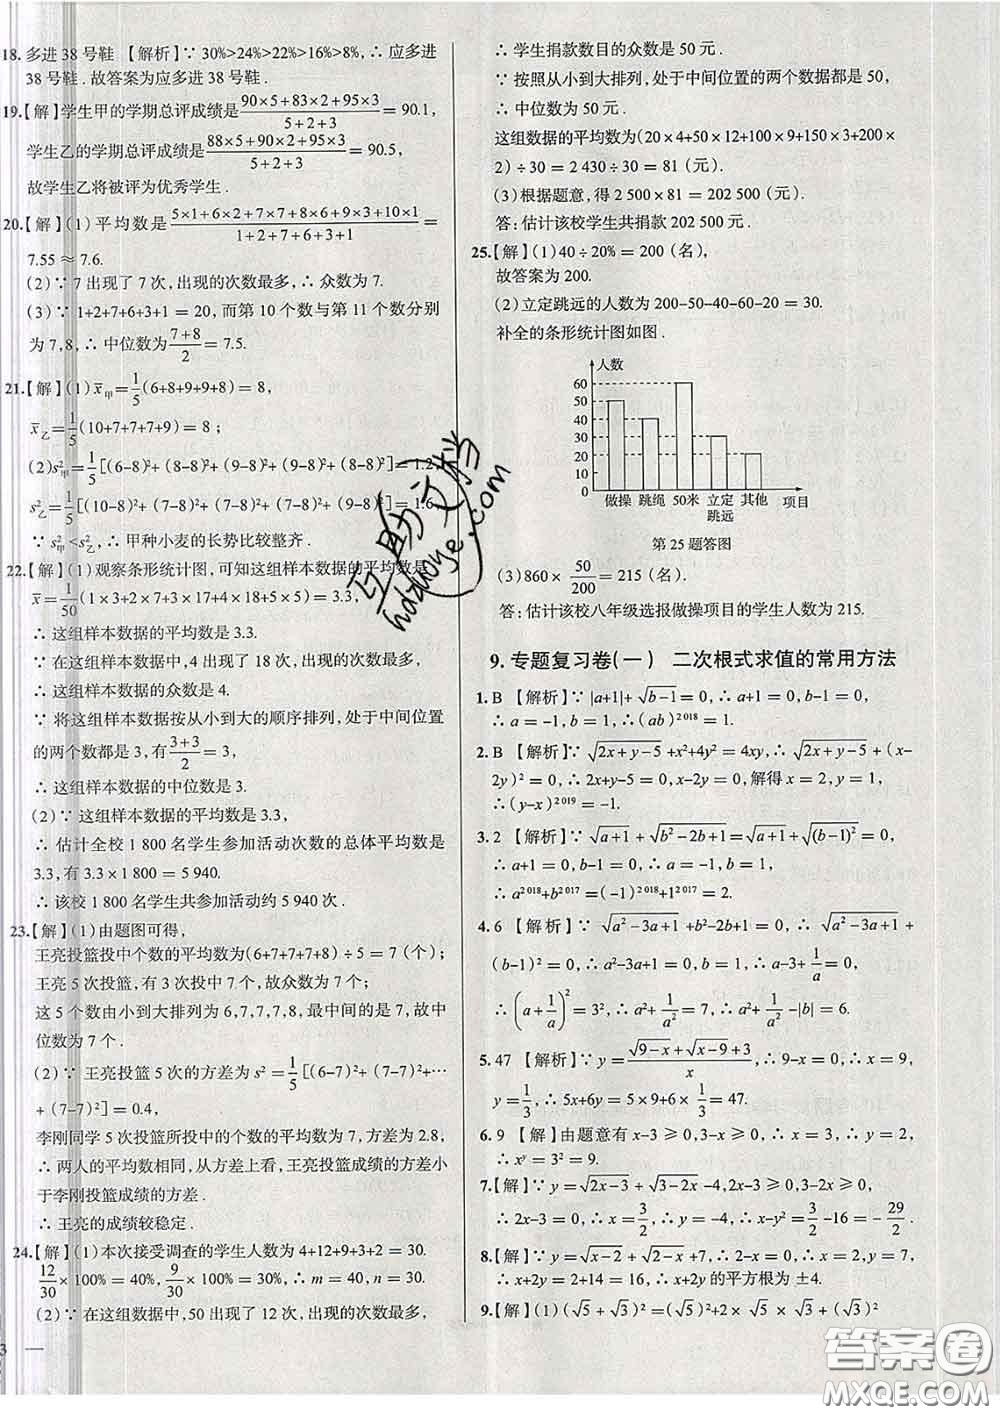 18. 多进 38 号鞋 【解析】∵ 30%>24%>22%>16%>8%,∴ 应多进
38 号鞋 . 故答案为应多进 38 号鞋 .
19.【解】学生甲的学期总评成绩是 (90×5+83×2+95×3)/(5+2+3) = 90.1,
学生乙的学期总评成绩是 (88×5+90×2+95×3)/(5+2+3) = 90.5,
故学生乙将被评为优秀学生 .
20.【解】(1)平均数是 (5×1+6×2+7×7+8×6+9×3+10×1)/(1+2+7+6+3+1) =
7.55 ≈ 7.6.
(2)∵ 7 出现了 7 次,出现的次数最多,∴ 众数为 7.
(3)∵ 1+2+7+6+3+1 = 20,而第 10 个数与第 11 个数分别
为 7,8,∴ 中位数为 (7+8)/2 = 7.5.
21.【解】(1) x̄甲 = 1/5 (6+8+9+9+8) = 8,
x̄乙 = 1/5 (10+7+7+7+9) = 8 ;
(2) s²甲 = 1/5 [(6-8)²+ (8-8)²+ (9-8)²+ (9-8)²+ (8-8)²] = 1.2,
s²乙 = 1/5 [(10-8)²+ (7-8)²+ (7-8)²+ (7-8)²+ (9-8)²] = 1.6,
∵ s²甲 < s²乙,∴ 甲种小麦的长势比较整齐 .
22.【解】(1)观察条形统计图,可知这组样本数据的平均数是
x̄ = 1/50 (1×3+2×7+3×17+4×18+5×5) = 3.3,
∴ 这组样本数据的平均数是 3.3.
∵ 在这组样本数据中,4 出现了 18 次,出现的次数最多,
∴ 这组样本数据的众数是 4.
∵ 将这组样本数据按从小到大的顺序排列,处于中间位置
的两个数都是 3,有 (3+3)/2 = 3,
∴ 这组样本数据的中位数是 3.
(2)∵ 这组样本数据的平均数是 3.3,
∴ 估计全校 1 800 名学生参加活动次数的总体平均数是
3.3,有 3.3×1 800 = 5 940.
∴ 该校 1 800 名学生共参加活动约 5 940 次 .
23.【解】(1)由题图可得,
王亮投篮投中个数的平均数为(6+7+7+7+8)÷5 = 7(个);
王亮 5 次投篮,有 3 次投中 7 个,故众数为 7 个;
这 5 个数由小到大排列为 6,7,7,7,8,最中间的是 7,故中
位数为 7 个 .
(2)∵ 王亮投篮 5 次的方差为 s² = 1/5 [(6-7)²+ (7-7)²+ ⋯
+ (7-7)²] = 0.4,
李刚同学 5 次投篮所投中的个数的平均数为 7,方差为 2.8,
∴ 两人的平均数相同,从方差上看,王亮投篮成绩的方差小
于李刚投篮成绩的方差 .
∴ 王亮的成绩较稳定 .
24.【解】(1)本次接受调查的学生人数为 4+12+9+3+2 = 30.
12/30 × 100% = 40%, 9/30 × 100% = 30%,∴ m = 40,n = 30.
(2)∵ 在这组数据中,50 出现了 12 次,出现的次数最多,
3 —
∴ 学生捐款数目的众数是 50 元 .
∵ 按照从小到大排列,处于中间位置的两个数据都是 50,
∴ 中位数为 50 元 .
这组数据的平均数为(20×4+50×12+100×9+150×3+200×
2)÷30 = 2 430÷30 = 81 (元).
(3)根据题意,得 2 500×81 = 202 500 (元).
答:估计该校学生共捐款 202 500 元 .
25.【解】(1)40÷20% = 200 (名),
故答案为 200.
(2)立定跳远的人数为 200-50-40-60-20 = 30.
补全的条形统计图如图 .
人数
60
50
40
30
20
10
0
做操 跳绳 50米 立定跳远 其他 项目
第 25 题答图
(3)860× 50/200 = 215 (名).
答:估计该校八年级选报做操项目的学生人数为 215.
9. 专题复习卷(一) 二次根式求值的常用方法
1. B 【解析】∵ |a+1|+ √(b-1) = 0,∴ a+1 = 0,b-1 = 0,
∴ a = -1,b = 1,∴ (ab)²⁰¹⁸ = 1.
2. B 【解析】∵ √(2x+y-5) +x²+4y² = 4xy,∴ √(2x+y-5) + (x-
2y)² = 0,∴ 2x+y-5 = 0,x-2y = 0,解得 x = 2,y = 1,
∴ (y-x)²⁰¹⁹ = -1.
3. 2 【解析】∵ √(a+1) + √(b²-2b+1) = √(a+1) + √((b-1)²) = 0,
∴ a+1 = 0,b-1 = 0,∴ a = -1,b = 1,
∴ a²⁰¹⁸+b²⁰¹⁷ = (-1)²⁰¹⁸+1²⁰¹⁷ = 2.
4. 6 【解析】∵ √(a²-3a+1) +b²-2b+1 = 0,∴ √(a²-3a+1) +
(b-1)² = 0,∴ a²-3a+1 = 0,b-1 = 0,∴ a-3+ 1/a = 0,
∴ (a+ 1/a)² = 3²,∴ a²+ 1/a² = 7,∴ a²+ 1/a² -|b| = 6.
5. 47 【解析】∵ y = (√(9-x) + √(x-9) +3)/x,∴ 9-x = 0,∴ x = 9,
y = 1/3,∴ 5x+6y = 5×9+6× 1/3 = 47.
6. 9 【解】由题意有 x-3 ⩾ 0,3-x ⩾ 0,∴ x = 3,∴ y = 2,
∴ xʸ = 3² = 9.
7.【解】∵ y = √(2x-3) + √(3-2x) -4,∴ 2x-3 ⩾ 0,3-2x ⩾ 0,
∴ 2x-3 = 0,∴ x = 3/2,∴ y = -4,∴ x-y² = 3/2 -16 = - 29/2.
8.【解】∵ y = √(x-2) + √(2-x) +7,∴ x-2 = 0,∴ x = 2,y = 7,
∴ x+2y = 2+14 = 16,∴ x+2y 的平方根为 ±4.
9.【解】(1) (√5 + √3)² = (√5)²+2× √5 × √3 + (√3)²
互助文档
hdzuoye.com
答案圈
MXQE.COM